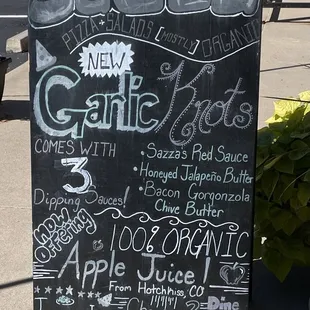 PIZZA + SALADS [MOSTLY] ORGANIC
NEW
Garlic Knots
COMES WITH
3
Dipping Sauces!
• Sazza's Red Sauce
• Honeyed Jalapeño Butter
• Bacon Gorgonzola
Chive Butter
now
Offering
100% ORGANIC
Apple Juice!
From Hotchkiss, CO
Dine